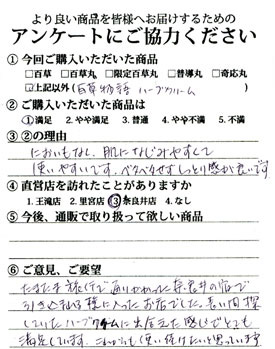 より良い商品を皆様へお届けするための
アンケートにご協力ください
①今回ご購入いただいた商品
□百草 □百草丸 □限定百草丸 □普導丸 □奇応丸
☑上記以外(百草物語 ハーブクリーム
②ご購入いただいた商品は
①満足 2.やや満足 3.普通 4.やや不満 5.不満
③②の理由
においもなし、肌になじみやすくて
使いやすいです。ベタベタせずしっとり感が良いです
④直営店を訪れたことがありますか
1.王滝店 2.里宮店 ③奈良井店 4.なし
⑤今後、通販で取り扱って欲しい商品
⑥ご意見、ご要望
たまたま旅行で通りかかった奈良井の宿で
引き込まれる様に入ったお店でした。長い間探
していたハーブクリームに出会えた感じでとても
満足しています。これからも使い続けたいと思っています